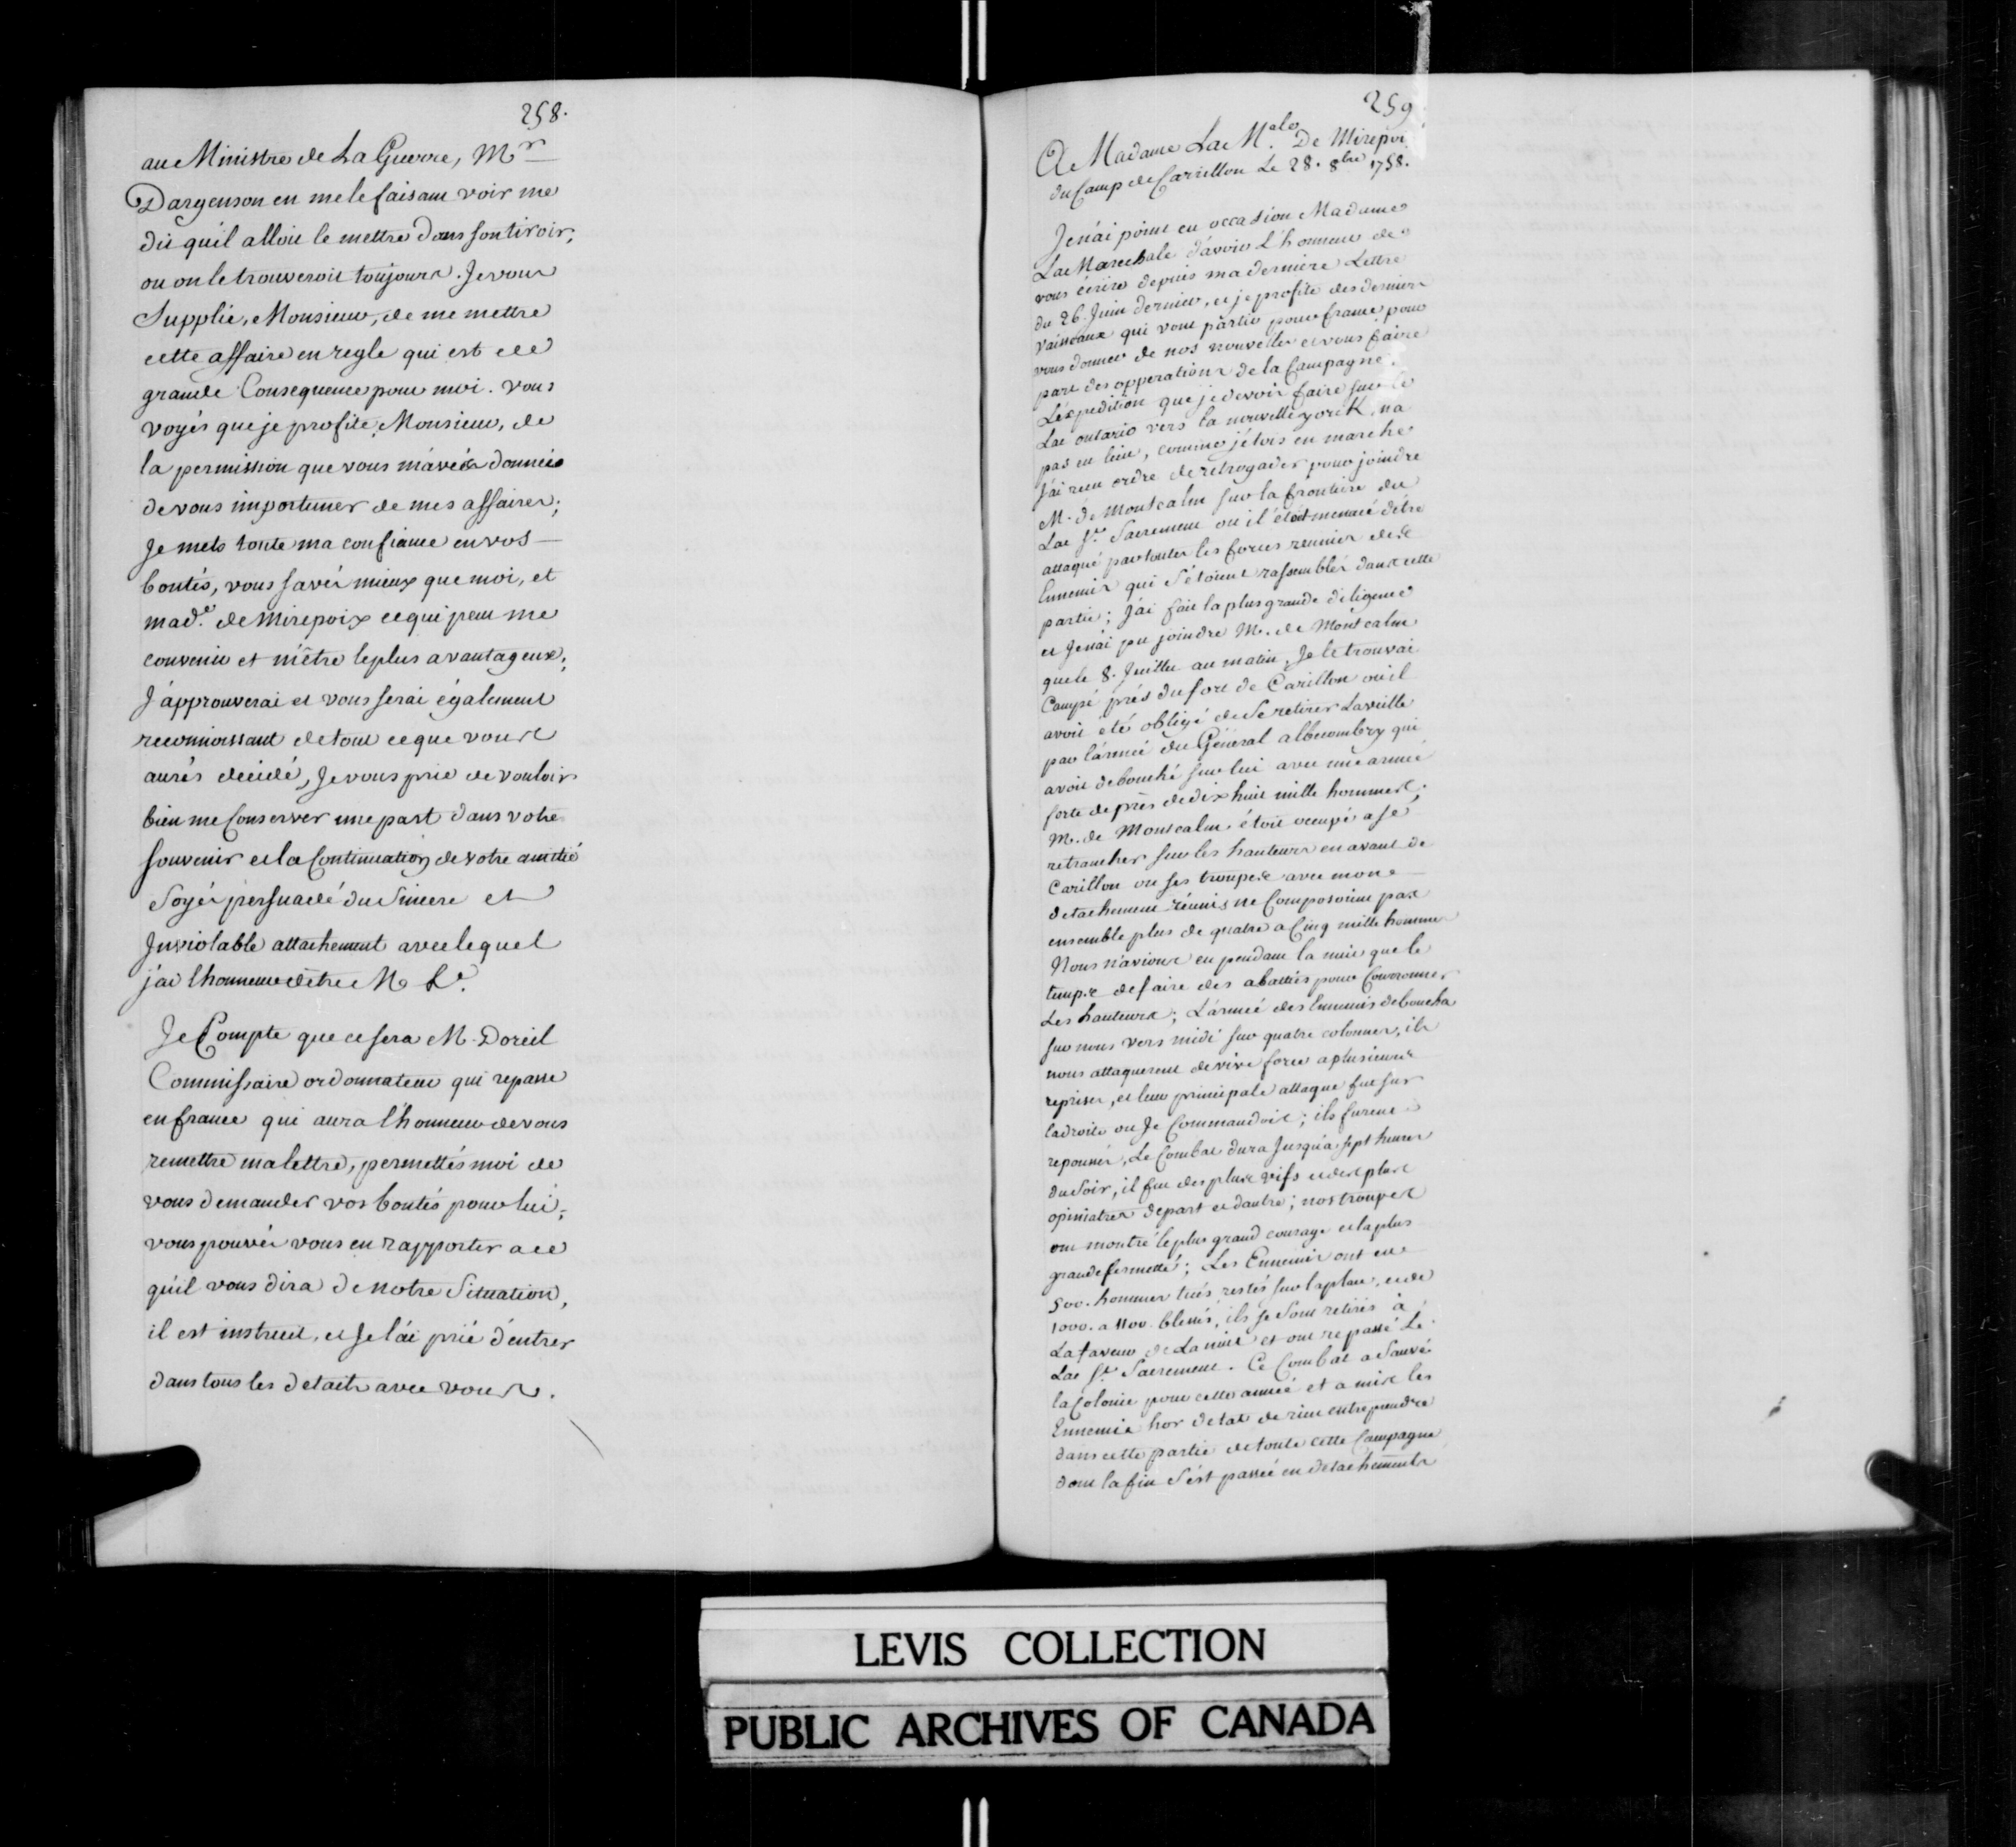 258.
au Ministre de La Guerre, Mr
Dargenson en me le faisant voir me
dit qu'il alloit le mettre dans son tiroir,
ou on le trouveroit toujours. Je vous
Supplie, Monsieur, de me mettre
cette affaire en regle qui est de
grande Consequence pour moi. vous
voyés que je profite, Monsieur, de
la permission que vous m'avés donnée
de vous importuner de mes affaires;
Je mets toute ma confiance en vos
bontés, vous savés mieux que moi, et
made. de Mirepoix ce qui peut me
convenir et m'être le plus avantageux;
J'approuverai et vous serai également
reconnoissant de tout ce que vous
aurés decidé, Je vous prie de vouloir
bien me Conserver une part dans votre
souvenir et la Continuation de votre amitié
Soyés persuadé du Sincere et
Inviolable attachement avec lequel
j'ai l'honneur d'être M &.
Je Compte que ce sera M. Doreil
Commissaire ordonnateur qui repasse
en france qui aura l'honneur de vous
remettre ma lettre, permettés moi de
vous demander vos bontés pour lui;
vous pouvés vous en rapporter a ce
qu'il vous dira de notre Situation,
il est instruit, et Je l'ai prié d'entrer
dans tous les details avec vous.
259
A Madame La Male. De Mirepoi
du Camp de Carillon Le 28. 8bre 1758.
Je n'ai point eu occasion Madame
La Marechale d'avoir L'honneur de
vous écrire depuis ma derniere Lettre
du 26. Juin dernier, et je profite des derniers
vaisseaux qui vont partir pour france pour
vous donner de nos nouvelles et vous faire
part des opperations de la Campagne.
L'éxpedition que je devois faire sur le
Lac ontario vers la nouvelle yorck, na
pas eu lieu, comme j'étois en marche
J'ai reçu ordre de retrogader pour joindre
M. de Montcalm sur la frontiere du
Lac St. Sacrement ou il étoit menacé d'être
attaqué par toutes les forces reunies des
Ennemis qui s'étoient rassemblés dans cette
partie; J'ai fait la plus grande diligence
et Je n'ai pu joindre M. de Montcalm
que le 8. Juillet au matin, Je le trouvai
Campé prés du fort de Carillon ou il
avoit été obligé de se retirer La veille
par l'armée du Géneral albercombry qui
avoit debouché sur lui avec une armée
forte de près de dix huit mille hommes.
M. de Montcalm étoit occupé a se
retrancher sur les hauteurs en avant de
Carillon ou ses troupes avec mon
detachement réunis ne Composoient pas
ensemble plus de quatre a Cinq mille hommes
Nous n'avions eu pendant la nuit que le
temps de faire des abattis pour Couronner
Les hauteurs; L'armée des Ennemis deboucha
sur nous vers midi sur quatre colonnes, ils
nous attaquerent de vive force a plusieurs
reprises, et leur principale attaque fut sur
la droite ou Je Commandois; ils furent
repoussés, Le Combat dura Jusqu'a sept heures
du Soir, il fut des plus vifs et des plus
opiniatres de part et dautre; nos troupes
ont montré le plus grand courage et la plus
grande fermetté; Les Ennemis ont eu
500. hommes tués restés sur la place, et de
1000. a 1100. blessés, ils se sont retirés à
La faveur de La nuit et ont repassé Le
Lac St. Sacrement. Ce Combat a Sauvé
la Colonie pour cette année et a mis les
Ennemis hor d'etat de rien entreprendre
dans cette partie de toute cette Campagne
dont la fin s'est passée en detachements
LEVIS COLLECTION
PUBLIC ARCHIVES OF CANADA